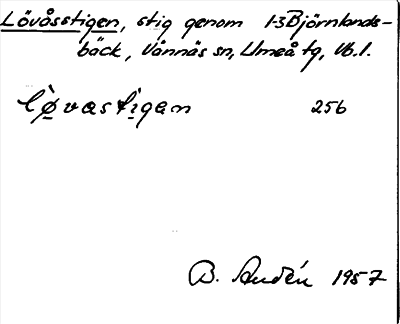 Lövåsstigen, stig genom 1-3 Björnlands-
bäck, Vännäs sn, Umeå tg, Vb. l.
lø̀vastigan 256
B. Audén 1957